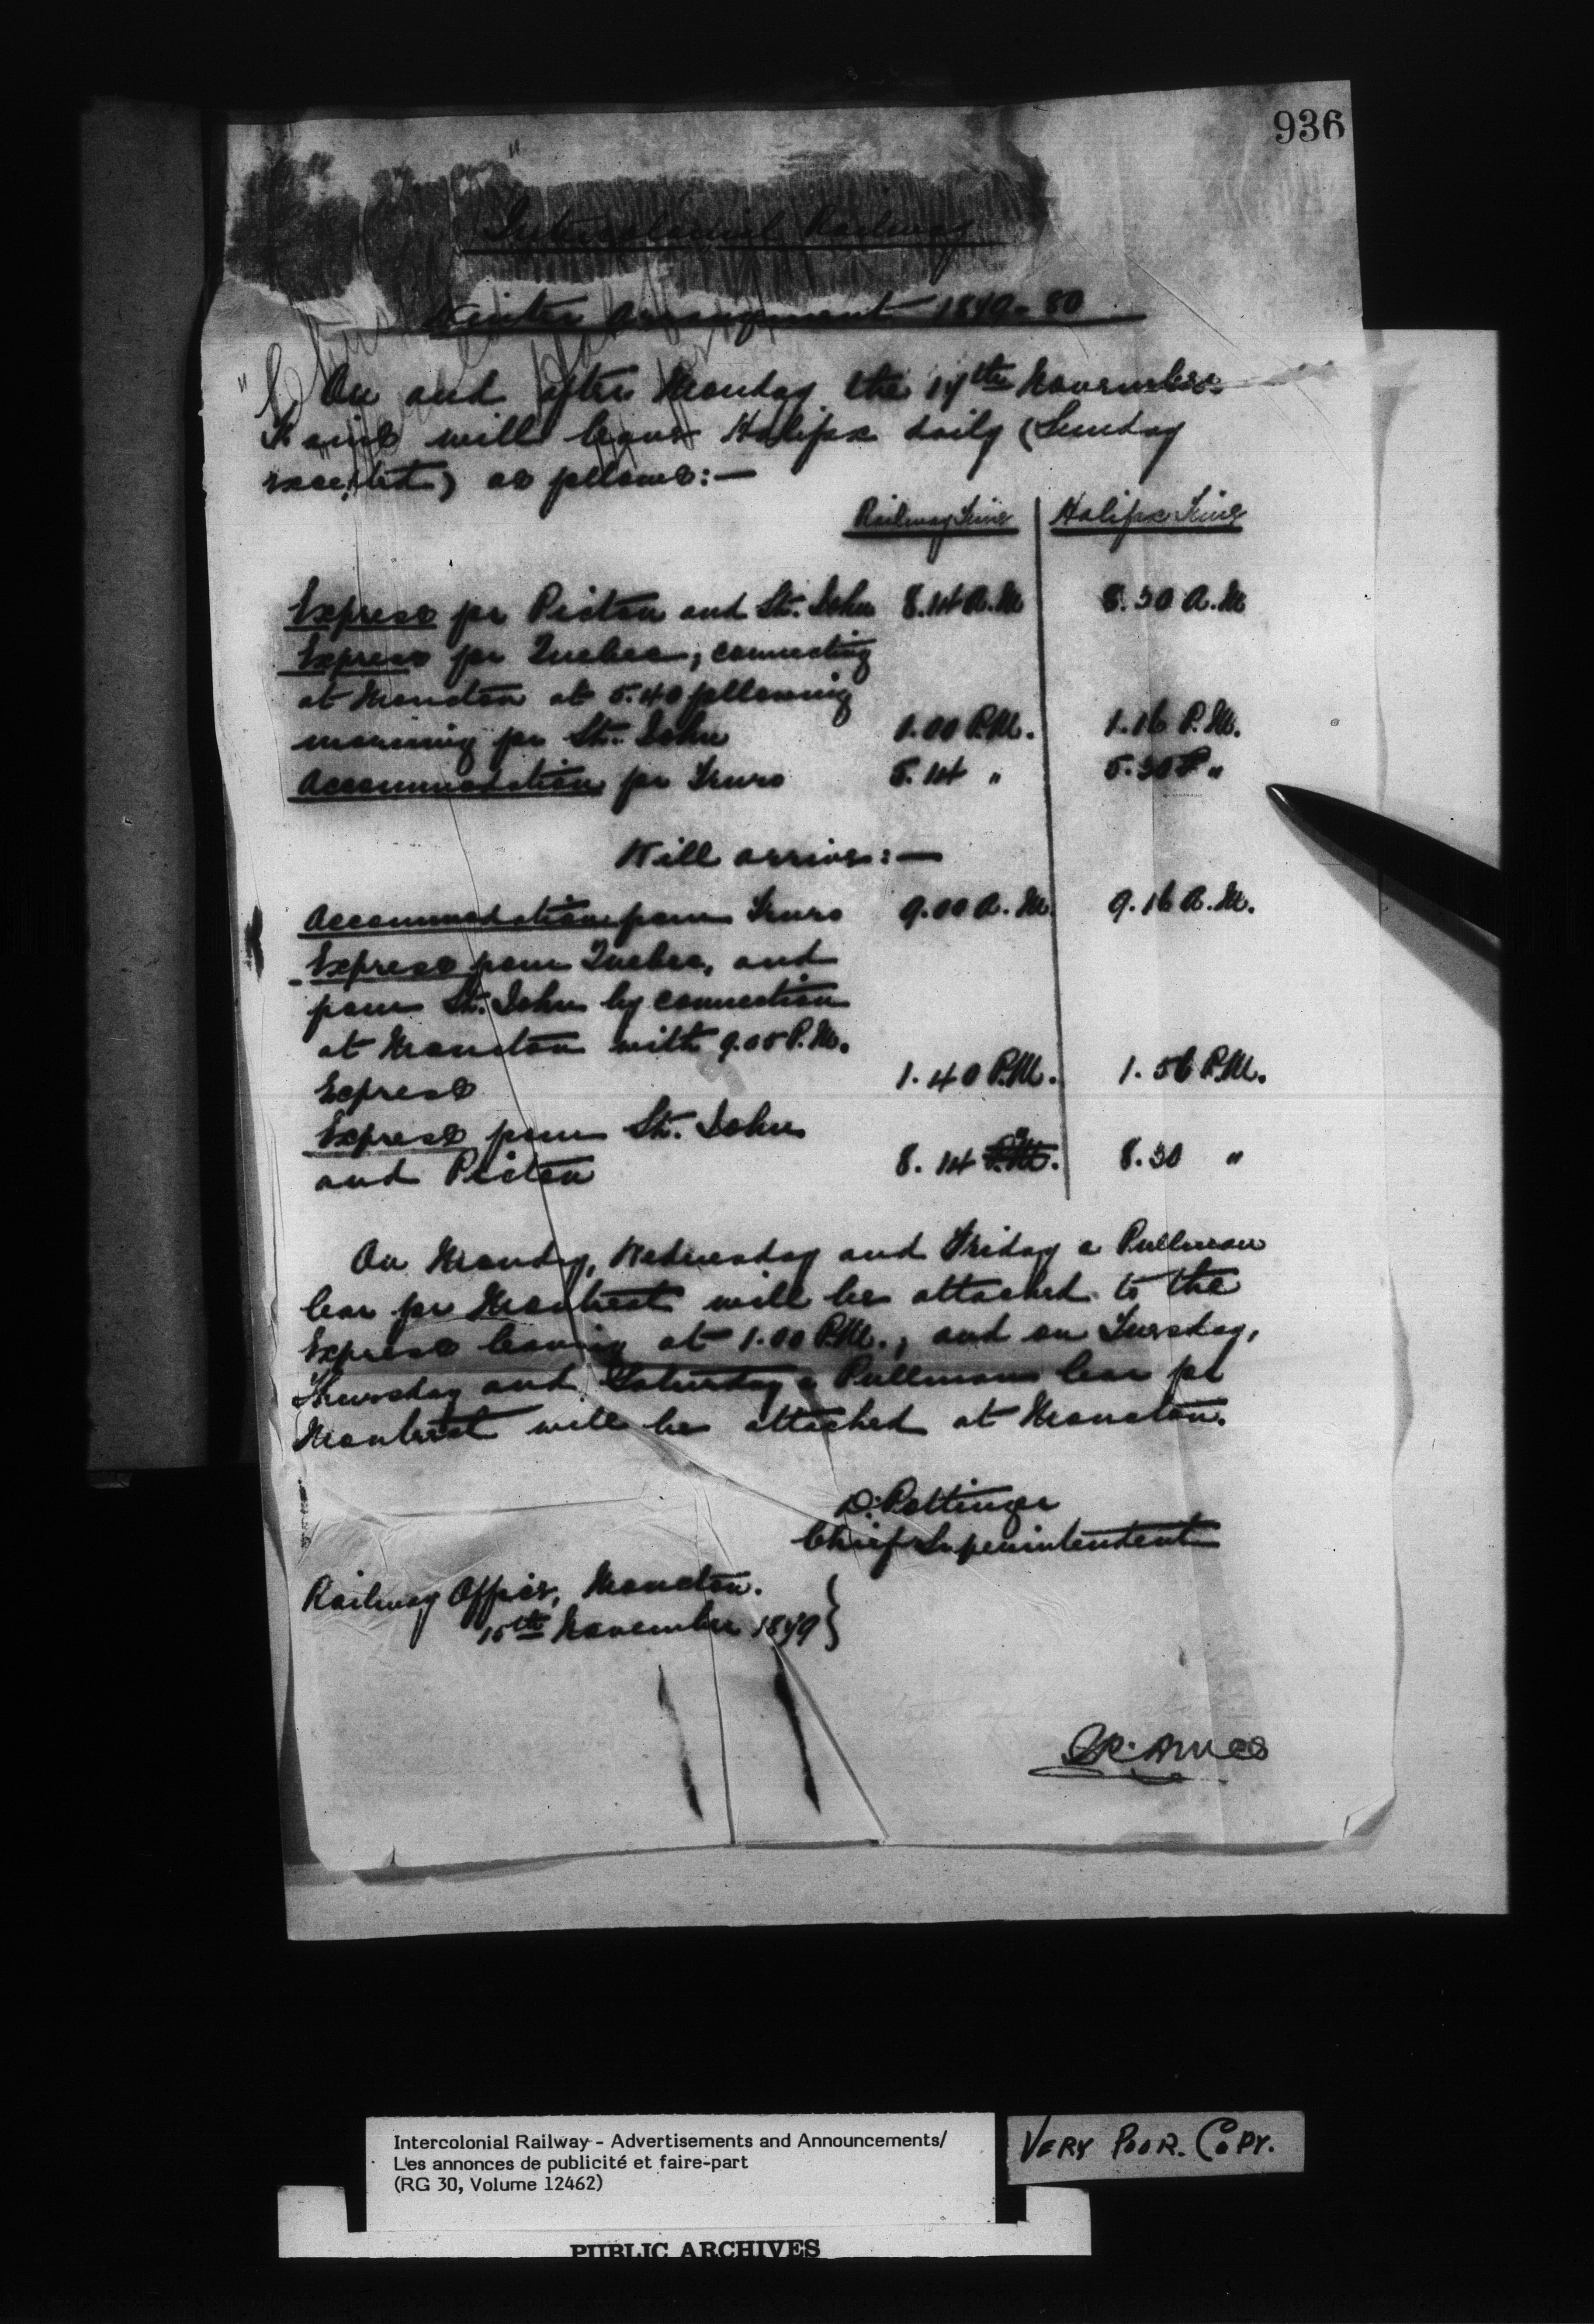 936
Intercolonial Railway
Winter Arrangement 1879-80
On and after Monday the 17th November
Trains will leave Halifax daily (Sunday
excepted) as follows:—
Railway Time Halifax Time
Express for Pictou and St. John 8.14 A.M 8.30 A.M
Express for Quebec, connecting
at Moncton at 5.40 following
morning for St. John 1.00 P.M. 1.16 P.M.
Accommodation for Truro 5.14 " 5.30 "
Will arrive:—
Accommodation from Truro 9.00 A.M. 9.16 A.M.
Express from Quebec, and
from St. John by connection
at Moncton with 9.05 P.M.
Express 1.40 P.M. 1.56 P.M.
Express from St. John
and Pictou 8.14 8.30 "
On Monday, Wednesday and Friday a Pullman
Car for Montreal will be attached to the
Express leaving at 1.00 P.M., and on Tuesday,
Thursday and Saturday a Pullman Car for
Montreal will be attached at Moncton.
D. Pottinger
Chief Superintendent
Railway Office, Moncton.
15th November 1879 }
Intercolonial Railway - Advertisements and Announcements/
Les annonces de publicité et faire-part
(RG 30, Volume 12462)
VERY POOR. COPY.
PUBLIC ARCHIVES